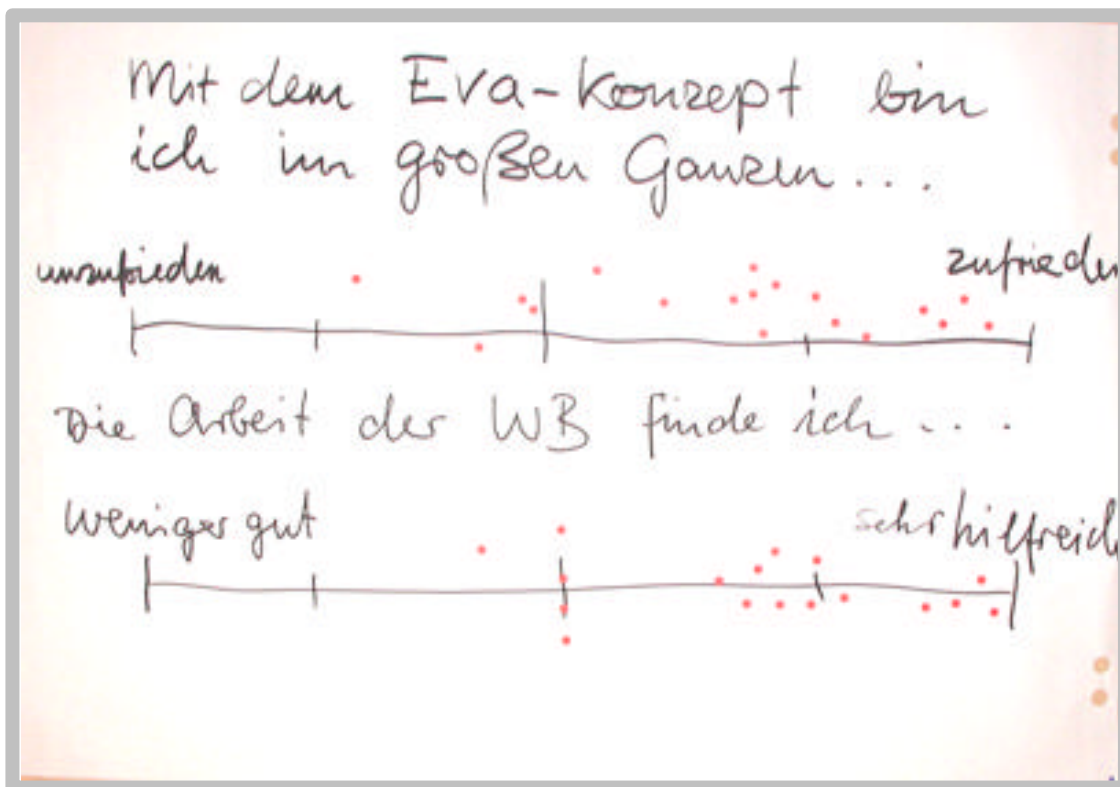 Mit dem Eva-Konzept bin
ich im großen Ganzen...
unzufrieden zufrieden
Die Arbeit der WB finde ich....
weniger gut sehr hilfreich